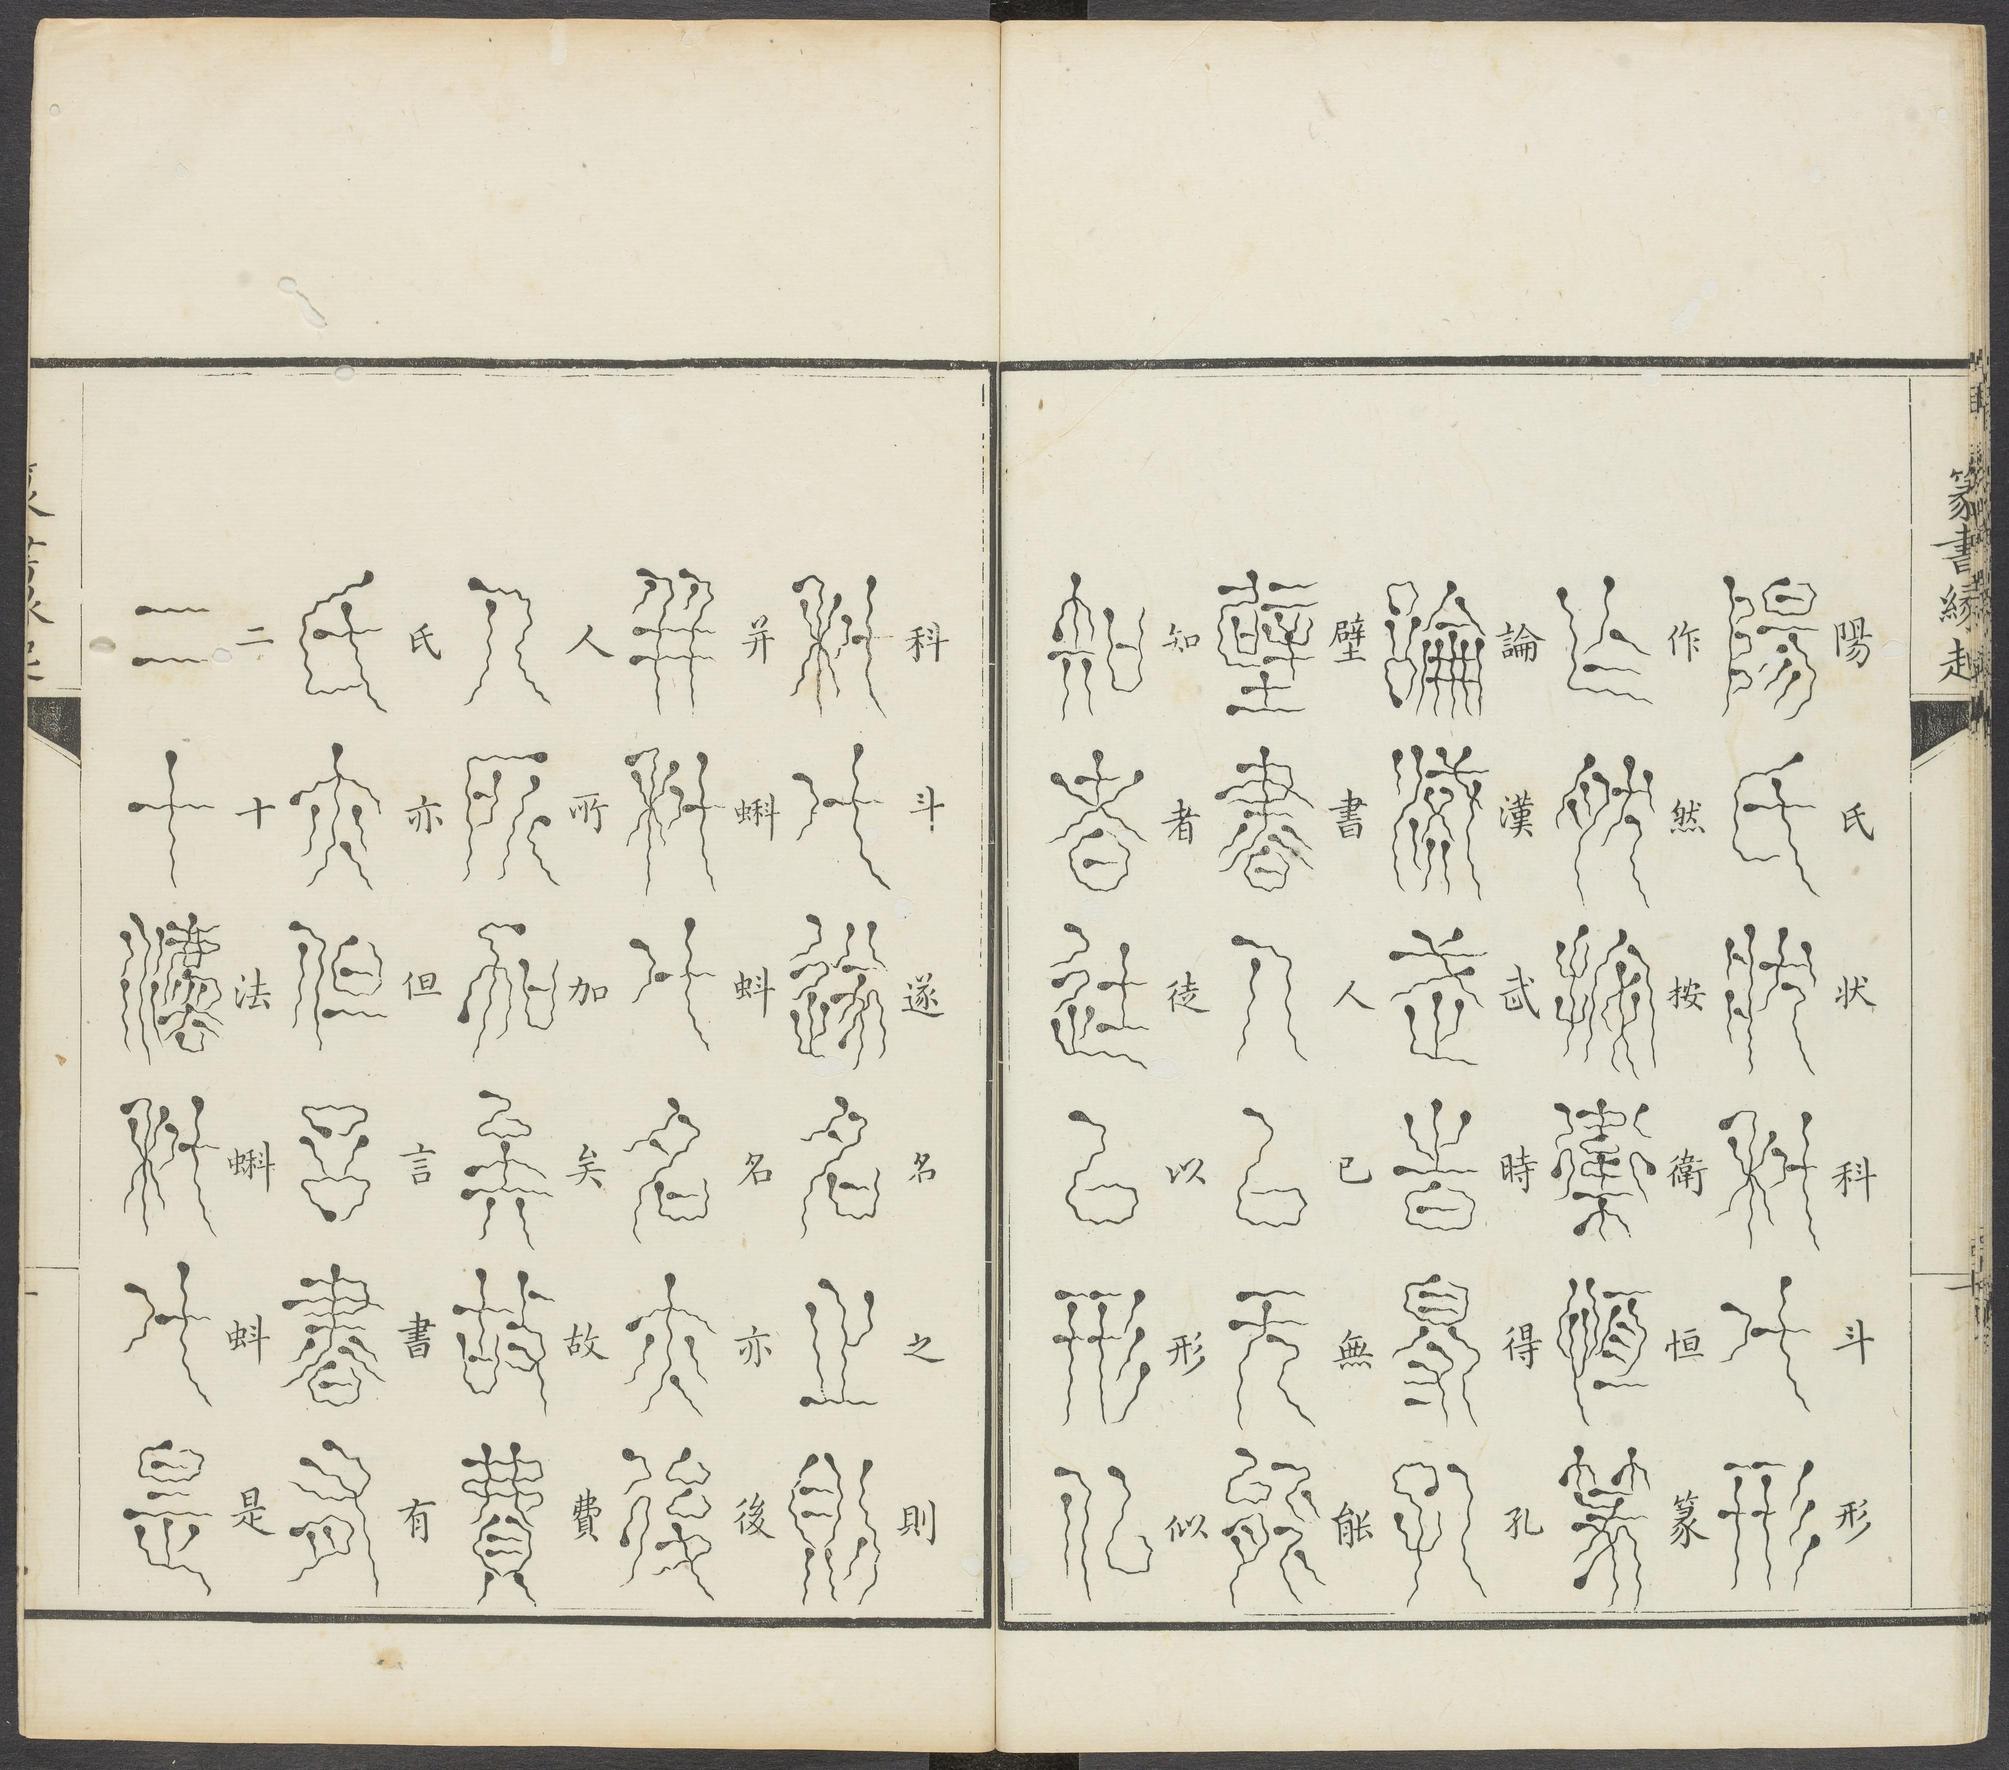 篆書緣起
陽氏狀科斗形
作然按衛恒篆
論漢武時得孔
壁書人已無能
知者徒以形似
科斗遂名之則
并蝌蚪名亦後
人所加矣故費
氏亦但言書有
二十法蝌蚪是